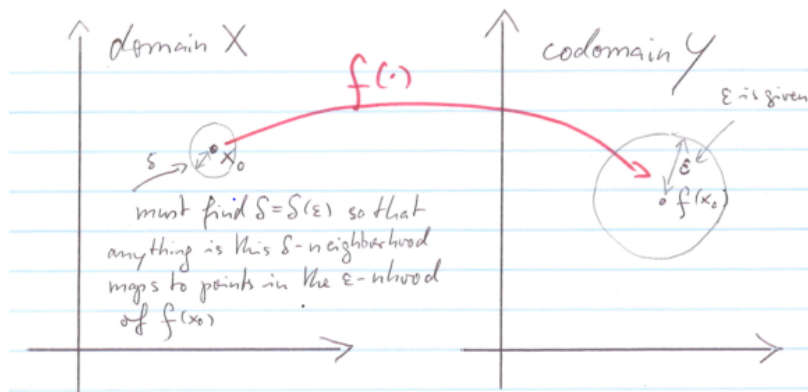 domain X
f(·)
codomain Y
ε is given
δ
x₀
ε
f(x₀)
must find δ=δ(ε) so that
anything is this δ-neighborhood
maps to points in the ε-nhood
of f(x₀)